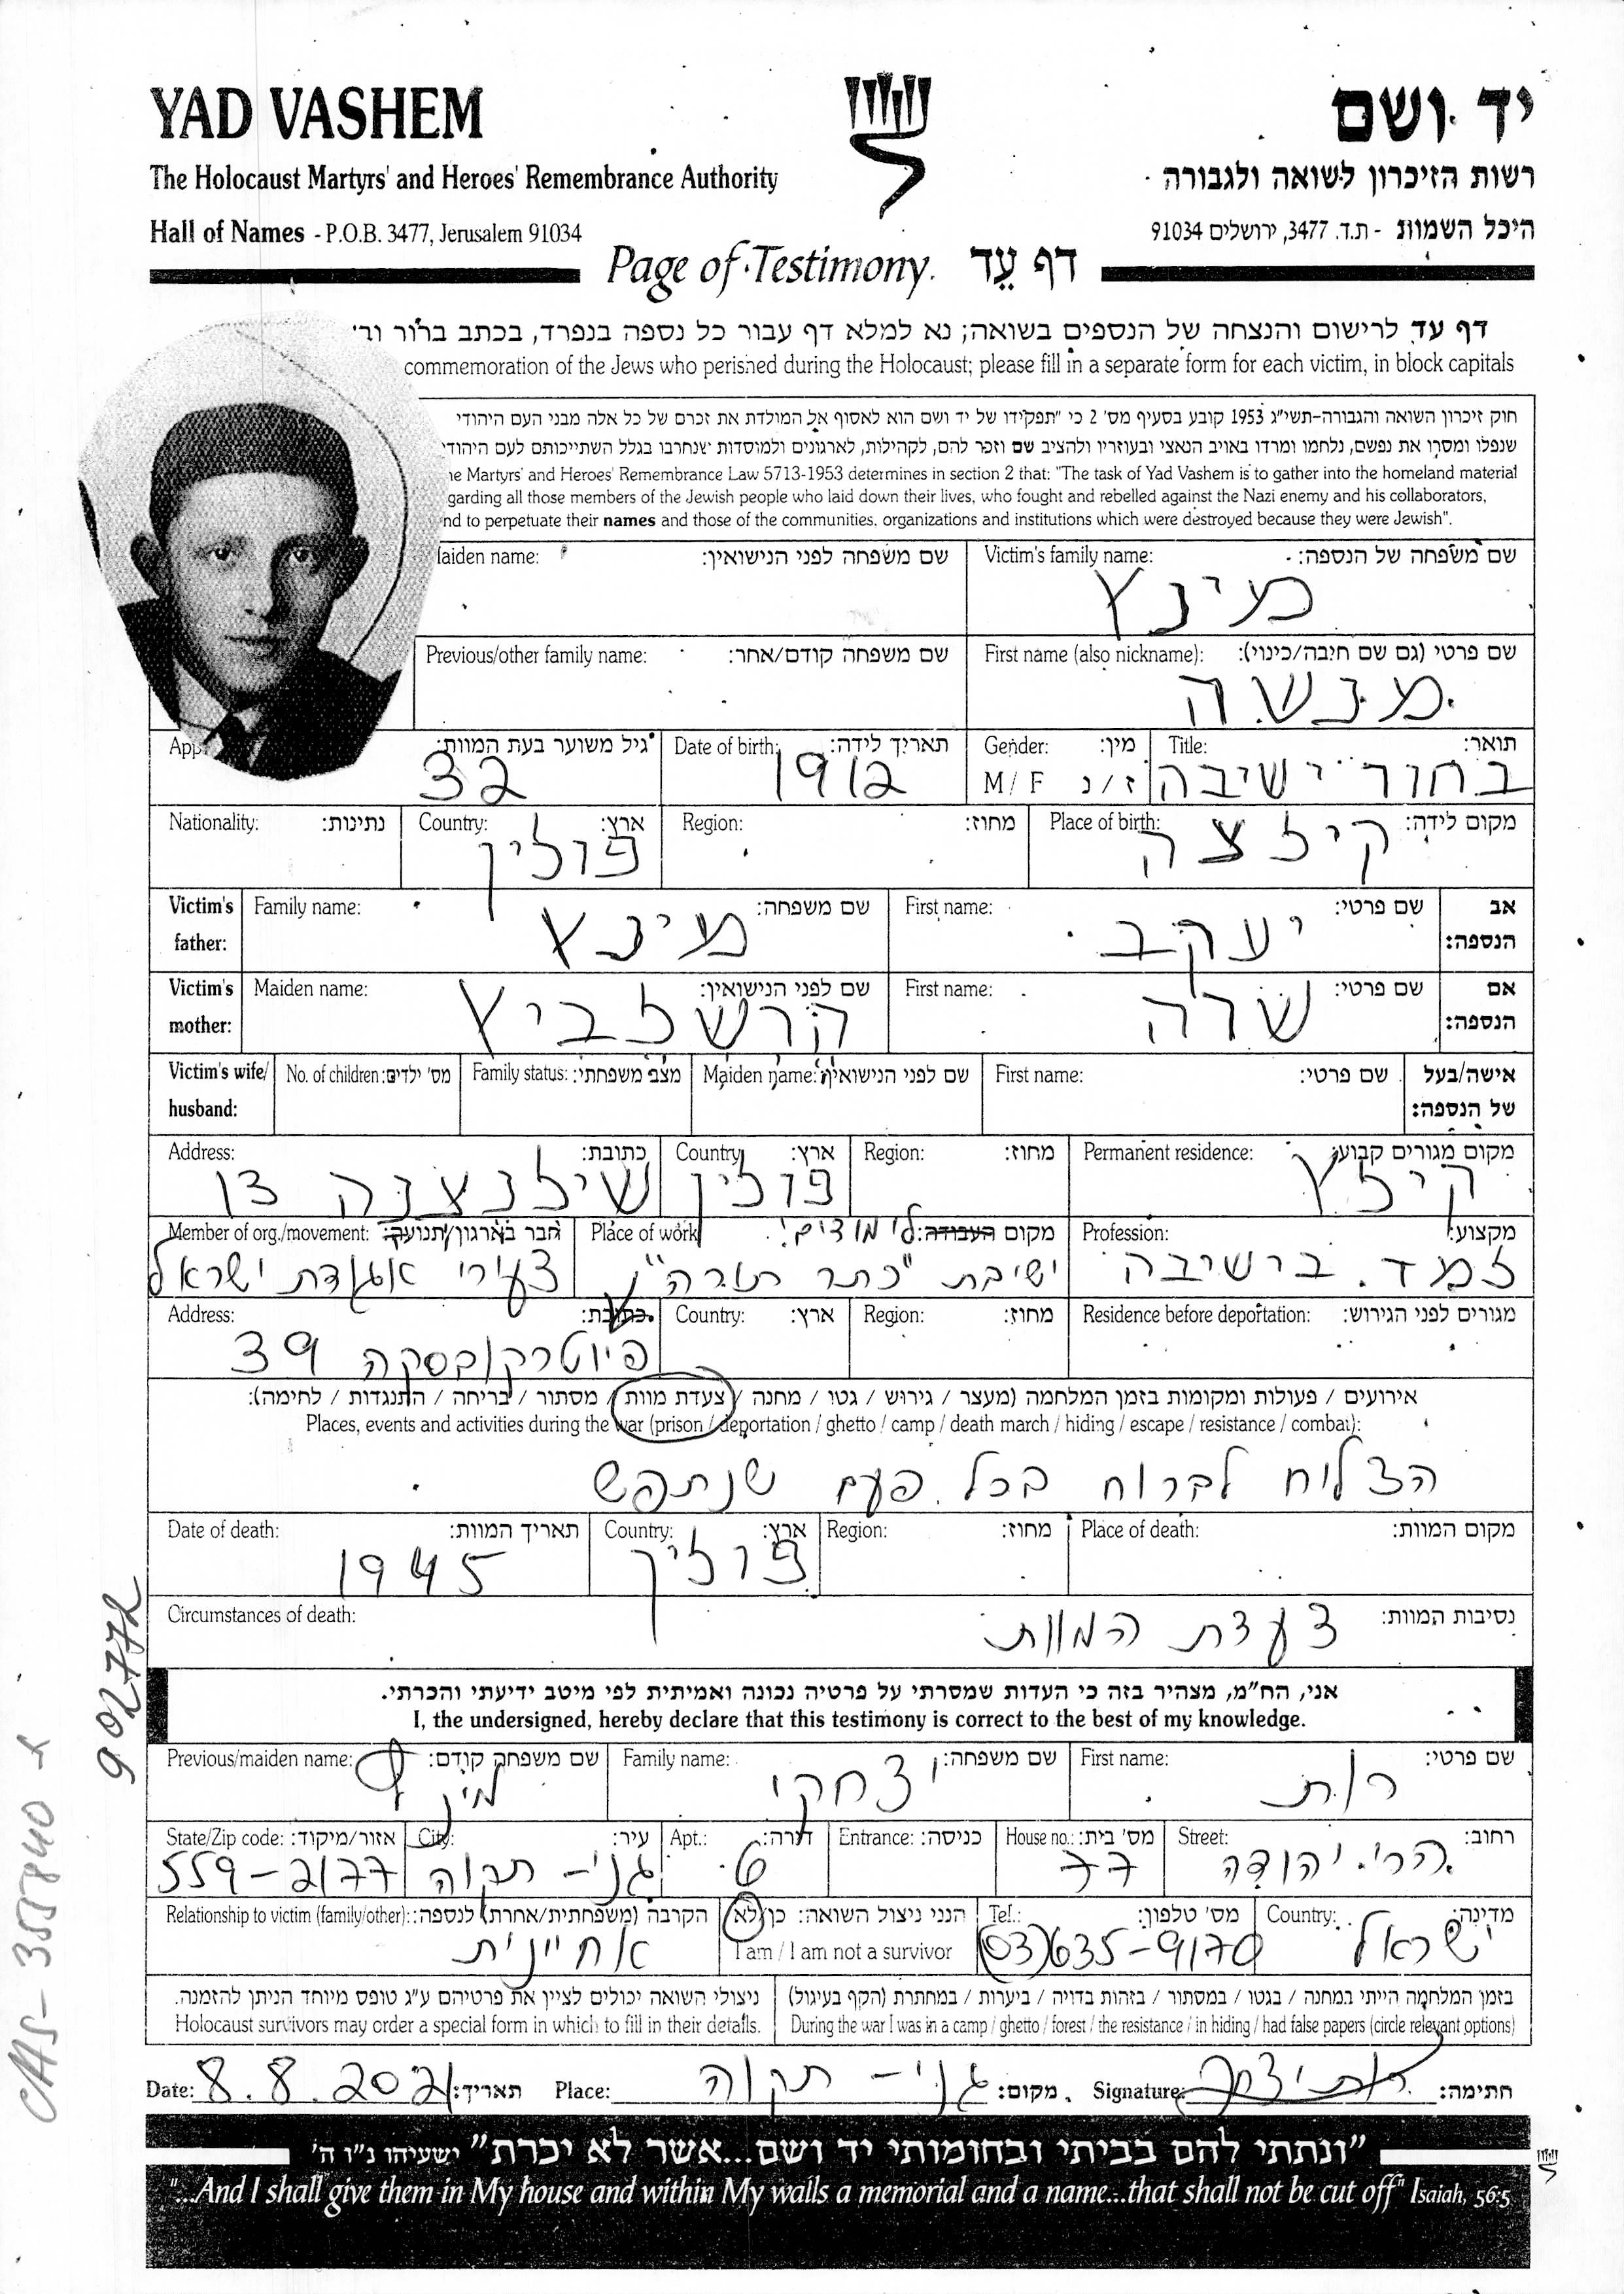 YAD VASHEM
יד ושם
The Holocaust Martyrs' and Heroes' Remembrance Authority
רשות הזיכרון לשואה ולגבורה
Hall of Names - P.O.B. 3477, Jerusalem 91034
היכל השמות - ת.ד. 3477, ירושלים 91034
Page of Testimony דף עֵד
דף עד לרישום והנצחה של הנספים בשואה; נא למלא דף עבור כל נספה בנפרד, בכתב ברור
commemoration of the Jews who perished during the Holocaust; please fill in a separate form for each victim, in block capitals
חוק זיכרון השואה והגבורה-תשי"ג 1953 קובע בסעיף מס' 2 כי "תפקידו של יד ושם הוא לאסוף אל המולדת את זכרם של כל אלה מבני העם היהודי
שנפלו ומסרו את נפשם, נלחמו ומרדו באויב הנאצי ובעוזריו ולהציב שם וזכר להם, לקהילות, לארגונים ולמוסדות שנחרבו בגלל השתייכותם לעם היהודי
Martyrs' and Heroes' Remembrance Law 5713-1953 determines in section 2 that: "The task of Yad Vashem is to gather into the homeland material
garding all those members of the Jewish people who laid down their lives, who fought and rebelled against the Nazi enemy and his collaborators,
nd to perpetuate their names and those of the communities, organizations and institutions which were destroyed because they were Jewish".
שם משפחה של הנספה: Victim's family name: שם משפחה לפני הנישואין: aiden name:
מינץ
שם פרטי (גם שם חיבה/כינוי): First name (also nickname): שם משפחה קודם/אחר: Previous/other family name:
מנשה
תואר: Title: מין: Gender: תאריך לידה: Date of birth: גיל משוער בעת המוות: App
בחור ישיבה ז/נ M/F 1912 32
מקום לידה: Place of birth: מחוז: Region: ארץ: Country: נתינות: Nationality:
קילצה פולין
אב הנספה: שם פרטי: First name: שם משפחה: Family name: Victim's father:
יעקב מינץ
אם הנספה: שם פרטי: First name: שם לפני הנישואין: Maiden name: Victim's mother:
שרה הרשלביץ
אישה/בעל של הנספה: שם פרטי: First name: שם לפני הנישואין: Maiden name: מצב משפחתי: Family status: מס' ילדים: No. of children: Victim's wife/ husband:
מקום מגורים קבוע: Permanent residence: מחוז: Region: ארץ: Country: כתובת: Address:
קילץ פולין שילנצנה 13
מקצוע: Profession: מקום העבודה: לימודים: Place of work חבר בארגון/תנועה: Member of org./movement:
למד בישיבה ישיבת "כתר תורה" צעירי אגודת ישראל
מגורים לפני הגירוש: Residence before deportation: מחוז: Region: ארץ: Country: כתובת: Address:
פיוטרקובסקה 39
אירועים / פעולות ומקומות בזמן המלחמה (מעצר / גירוש / גטו / מחנה / צעדת מוות / מסתור / בריחה / התנגדות / לחימה):
Places, events and activities during the war (prison / deportation / ghetto / camp / death march / hiding / escape / resistance / combat):
הצליח לברוח בכל פעם שנתפש
מקום המוות: Place of death: מחוז: Region: ארץ: Country: תאריך המוות: Date of death:
פולין 1945
נסיבות המוות: צעדת המוות Circumstances of death:
אני, הח"מ, מצהיר בזה כי העדות שמסרתי על פרטיה נכונה ואמיתית לפי מיטב ידיעתי והכרתי.
I, the undersigned, hereby declare that this testimony is correct to the best of my knowledge.
שם פרטי: First name: שם משפחה: Family name: שם משפחה קודם: Previous/maiden name:
רות יצחקי מינץ
רחוב: Street: מס' בית: House no.: כניסה: Entrance: דירה: Apt.: עיר: City: אזור/מיקוד: State/Zip code:
הרי יהודה 77 6 גני-תקוה 559-2177
מדינה: Country: מס' טלפון: Tel.: הנני ניצול השואה: כן/לא הקרבה (משפחתית/אחרת) לנספה: Relationship to victim (family/other):
ישראל (03)635-9170 I am / I am not a survivor אחיינית
בזמן המלחמה הייתי במחנה / בגטו / במסתור / בזהות בדויה / ביערות / במחתרת (הקף בעיגול)
During the war I was in a camp / ghetto / forest / the resistance / in hiding / had false papers (circle relevant options)
ניצולי השואה יכולים לציין את פרטיהם ע"ג טופס מיוחד הניתן להזמנה.
Holocaust survivors may order a special form in which to fill in their details.
חתימה: רותי יצחקי Signature: מקום: גני-תקוה Place: תאריך: 8.8.2021 Date:
"ונתתי להם בביתי ובחומותי יד ושם...אשר לא יכרת" ישעיהו נ"ו ה'
"...And I shall give them in My house and within My walls a memorial and a name...that shall not be cut off" Isaiah, 56:5
90277